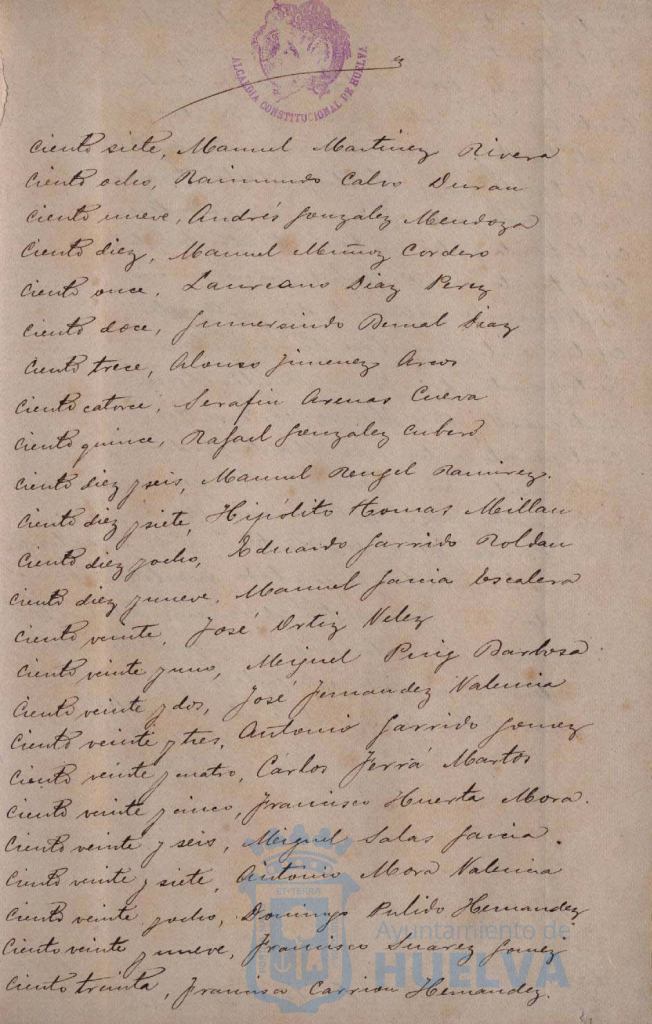 ALCALDIA CONSTITUCIONAL DE HUELVA
Ciento siete, Manuel Martinez Rivera
Ciento ocho, Raimundo Calvo Duran
Ciento nueve, Andrés Gonzalez Mendoza
Ciento diez, Manuel Muñoz Cordero
Ciento once, Laureano Diaz Perez
Ciento doce, Gumersindo Bernal Diaz
Ciento trece, Alonso Jimenez Arcos
Ciento catorce, Serafin Arenas Cueva
Ciento quince, Rafael Gonzalez Cubero
Ciento diez y seis, Manuel Rengel Ramirez.
Ciento diez y siete, Hipólito Homas Millan
Ciento diez y ocho, Eduardo Garrido Roldan
Ciento diez y nueve, Manuel Garcia Escalera
Ciento veinte, José Ortiz Velez
Ciento veinte y uno, Miguel Puig Barbosa
Ciento veinte y dos, José Fernandez Valencia
Ciento veinte y tres, Antonio Garrido Gomez
Ciento veinte y cuatro, Cárlos Ferrá Martos
Ciento veinte y cinco, Francisco Huerta Mora.
Ciento veinte y seis, Miguel Salas Garcia.
Ciento veinte y siete, Antonio Mora Valencia
Ciento veinte y ocho, Domingo Pulido Hernandez
Ciento veinte y nueve, Francisco Suarez Gomez
Ciento treinta, Francisco Carrion Hernandez.
Ayuntamiento de
HUELVA